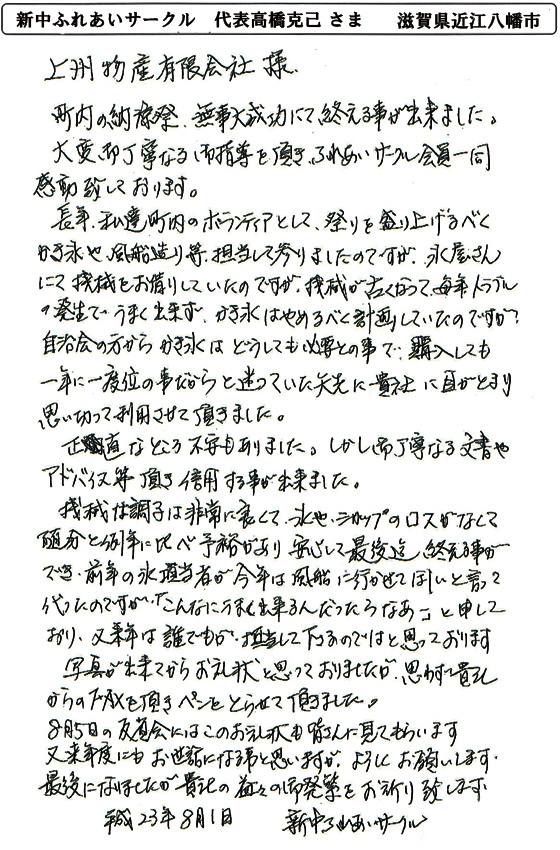 新中ふれあいサークル 代表高橋克己 さま 滋賀県近江八幡市
上州物産有限会社 様
町内の納涼祭、無事大成功にて終える事が出来ました。
大変御丁寧なる御指導を頂き、ふれあいサークル会員一同
感動致しております。
長年、私達町内のボランティアとして、祭りを盛り上げるべく
かき氷や、風船造り等、担当して参りましたのですが、氷屋さん
にて機械をお借りしていたのですが、機械が古くなって、毎年トラブル
の発生で、うまく出来ず、かき氷はやめるべく計画していたのですが?
自治会の方から かき氷は どうしても必要との事で、購入しても
一年に一度位の事だからと迷っていた矢先に貴社に目がとまり
思い切って利用させて頂きました。
正直なところ不安もありました。しかし御丁寧なる文書や
アドバイス等頂き信用する事が出来ました。
機械は調子は非常に良くて、氷や、シロップのロスがなくて
随分と例年に比べ予裕があり 安心して最後迄、終える事が
でき、前年の氷担当者が今年は風船に行かせてほしいと言って
代ったのですが、「こんなにうまく出来るんだったらなあ」と申して
おり、又来年は誰でもが、担当して下さるのではと思っております
写真が出来てからお礼状と思っておりましたが、思わず貴社
からのFAXを頂きペンをとらせて頂きました。
8月5日の反省会にはこのお礼状も皆さんに見てもらいます
又来年度にもお世話になる事と思いますが、よろしくお願いします。
最後になりましたが貴社の益々の御発展をお祈り致します
平成23年8月1日 新中ふれあいサークル